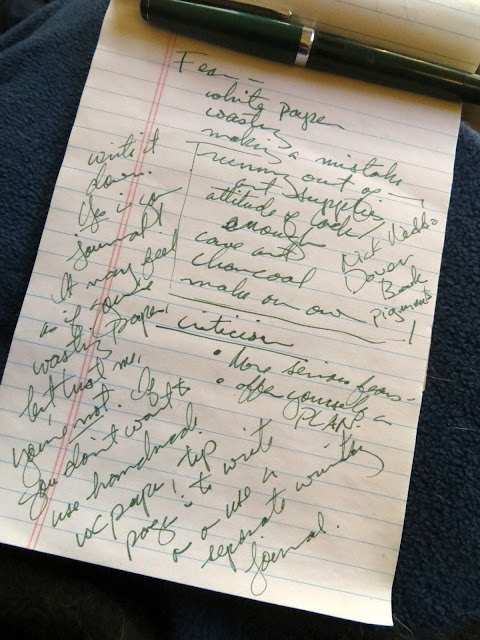 Fear –
white paper
wasting
making a mistake
running out of
art supplies
attitude of lack/
enough
cave art
charcoal
make our own!
Nick Neddo
Dover
Book
Pigments
Criticism
• More serious fears –
• offer yourself a
PLAN.
write it
down.
Use in car
journal!
It may feel
as if you're
wasting paper,
but trust me,
you're not. If
you don't want to
use handmade
wc paper, tip
pages to write
on or use a
separate writing
journal.